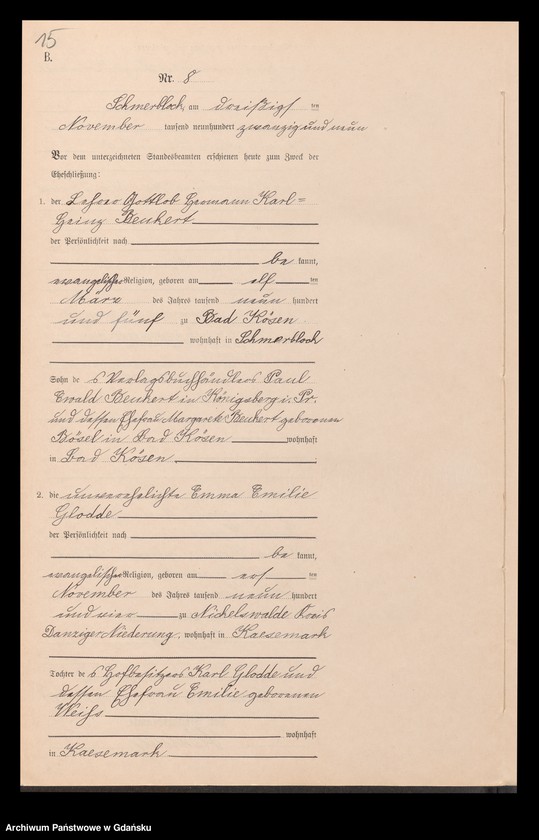 15
B.
Nr. 8
Schmerblock, am dreißigsten
November tausend neunhundert zwanzig und neun
Vor dem unterzeichneten Standesbeamten erschienen heute zum Zweck der
Eheschließung:
1. der Lehrer Gottlob Hermann Karl=
Heinz Beukert
der Persönlichkeit nach
be kannt,
evangelischer Religion, geboren am elf ten
März des Jahres tausend neun hundert
und fünf zu Bad Kösen
wohnhaft in Schmerblock
Sohn de s Verlagsbuchhändlers Paul
Ewald Beukert in Königsberg i. Pr.
und dessen Ehefrau Margarete Beukert geborenen
Bösel in Bad Kösen wohnhaft
in Bad Kösen
2. die unverehelichte Emma Emilie
Glodde
der Persönlichkeit nach
be kannt,
evangelischer Religion, geboren am ersten
November des Jahres tausend neun hundert
und vier zu Nickelswalde Kreis
Danziger Niederung, wohnhaft in Kaesemark
Tochter de s Hofbesitzers Karl Glodde und
dessen Ehefrau Emilie geborenen
Weiß
wohnhaft
in Kaesemark
Archiwum Państwowe w Gdańsku